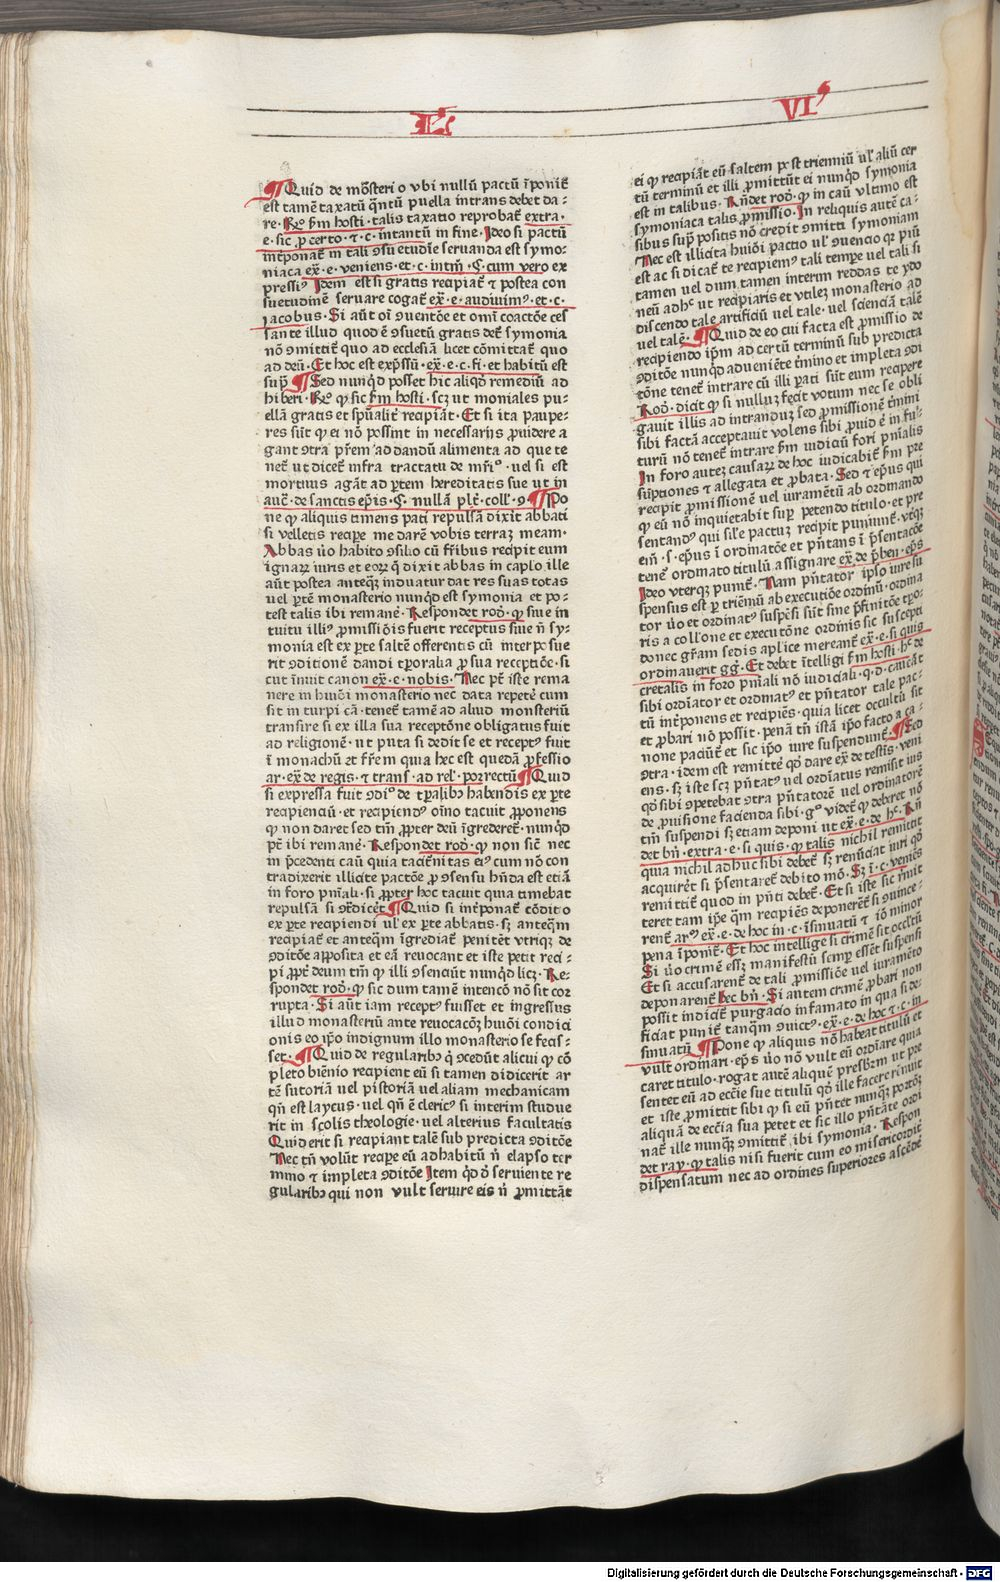 Lꝰ VIꝰ
¶Quid de mõsteri o vbi nullũ pactũ ĩponit̃
est tamẽ taxatũ q̃ntũ puella intrans debet da⸗
re· Rõ ẜm hosti· talis taxatio reprobat̃ extra·
e· sic ꝓ certo· ⁊ c· in tantũ in fine· Ideo si pactũ
interponat̃ in tali ꝯsuetudĩe seruanda est symo⸗
niaca ex̃· e· veniens· et· c· intm̃· Ꞔ· cum vero ex
pressiꝰ Idem est si gratis recipiat̃ ⁊ postea con
suetudinẽ seruare cogat̃ ex̃· e· audiuimꝰ· et· c·
jacobus· Si aũt oĩ ꝯuentõe et omĩ coactõe ces
sante illud quod ẽ ꝯsuetũ gratis det̃ symonia
nõ ꝯmittit̃ quo ad ecclesiã licet cõmittat̃ quo
ad deũ· Et hoc est exp̃ssũ· ex̃· e· c· fi· et habitũ est
sup̃ ¶Sed nunqͥd posset hic aliqd̃ remediũ ad
hiberi· Rõ ꝙ sic ẜm hosti· scz ut moniales pu⸗
ellã gratis et sp̃ualit̃ recipiãt· Et si ita paupe⸗
res sũt ꝙ ei nõ possint in necessarijs ꝓuidere a
gant ꝯtra pr̃em ad dandũ alimenta ad que te
net̃ ut dicet̃ infra tractatu de mr̃iº· uel si est
mortuus agãt ad ꝑtem hereditatis sue ut in
auc̃· de sanctis ep̃is· Ꞔ· nullã pl̃t· coll̃· 9· ¶Po
ne ꝙ aliquis timens pati repulsã dixit abbati
si velletis recipe me darẽ vobis terraz meam·
Abbas ũo habito ꝯsilio cũ fr̃ibus recipit eum
ignarꝝ iuris et eorꝝ q̃ dixit abbas in caplo ille
aũt postea anteqꝫ induatur dat res suas totas
uel ꝑtẽ monasterio nunqͥd est symonia et po⸗
test talis ibi remanẽ· Respondet rod̃· ꝙ siue in
tuitu illiꝰ ꝓmissiõis fuerit receptus siue ñ sy⸗
monia est ex ꝑte saltẽ offerentis cũ interposue
rit ꝯditionẽ dandi tꝑoralia ꝓ sua receptõe· si
cut inuit canon ex̃· c· nobis· Nec pt̃ iste rema
nere in huiõi monasterio nec data repetẽ cum
sit in turpi cã· tenet̃ tamẽ ad aliud monsteriũ
transire si ex illa sua receptõne obligatus fuit
ad religionẽ· ut puta si dedit se et receptꝰ fuit
ĩ monachũ ⁊t fr̃em quia hec est quedã ꝓfessio
ar· ex̃ de regis· ⁊ trans· ad rel̃· porrectũ ¶Quid
si expressa fuit ꝯdiº de tꝑalibꝫ habendis ex ꝑte
recipienciũ· et recipiendꝰ oĩno tacuit ꝓponens
ꝙ non daret sed tm̃ ꝓpter deũ ĩgrederet̃· nunqͥd
pt̃ ibi remanẽ· Respondet rod̃· ꝙ non sic̃ nec
in p̃cedenti caũ quia taciẽnitas eiꝰ cum nõ con
tradixerit illicite pactõe ꝓ ꝯsensu hñda est etiã
in foro pñiali· si ꝓpter hoc tacuit quia timebat
repulsã si ꝯtr̃diceret ¶Quid si interponat̃ cõdito
ex ꝑte recipiendi ul̃ ex ꝑte abbatis· sꝫ anteqͣm
recipiat̃ et anteqͣm ĩgrediat̃ penitẽt vtriqꝫ de
ꝯditõe apposita et eã reuocant et iste petit reci⸗
pi ꝓpt̃ deum tm̃ ꝙ illi ꝯsenciũt nunqͥd licꝫ· Re⸗
spondet rod̃· ꝙ sic dum tamẽ intencõ nõ sit cor
rupta· Si aũt iam receptꝰ fuisset et ingressus
illud monasteriũ ante reuocacõꝫ huiõi condici
onis eo ip̃o indignum illo monasterio se fecis⸗
set· ¶Quid de regularibꝫ q̃ ꝯcedũt alicui ꝙ cõ
pleto biẽnio recipient eũ si tamen didicerit ar
tẽ sutoriã uel pistoriã uel aliam mechanicam
qñ est laycus· uel qñ ẽ clericꝰ si interim studue
rit in scolis theologie· uel alterius facultatis
Quid erit si recipiant talẽ sub predicta ꝯditõe
Nec tñ volũt recipe eũ ad habitũ ñ elapso ter
mino ⁊ impleta ꝯditõe Item qͥd õ seruiente re
gularibꝫ qui non vult seruire eis ñ ꝓmittãt
ei ꝙ recipiãt eũ saltem post trienniũ ul̃ aliũ cer
tũ terminũ et illi ꝓmittũt ei nunqͥd symonia
est in talibus· Rñdet rod̃· ꝙ in caũ vltimo est
symoniaca talis ꝓmissio· In reliquis autẽ ca⸗
sibus sup̃ positis nõ credit ꝯmitti symoniam
Nec est illicita huiõi pactio ul̃ ꝯuencio qͥ piũ
est ac si dicat̃ te recipiemꝰ tali tempe uel tali si
tamen uel dum tamen interim reddas te ydo
neũ adhͨ ut recipiaris et vtileꝫ monasterio ad
discendo tale artificiũ uel tale· uel scienciã talẽ
uel talẽ· ¶Quid de eo cui facta est ꝓmissio de
recipiendo ip̃m ad certũ terminũ sub predicta
ꝯditõne nunqͥd adueniẽte tm̃ino et impleta ꝯdi
tõne tenet̃ intrare cũ illi ꝑati sũt eum recipere
Rod̃· dicit ꝙ si nulluꝫ fecit votum nec se obli
gauit illis ad intranduꝫ sed ꝓmissionẽ tm̃ini
sibi factã acceptauit volens sibi ꝓuidẽ in fu⸗
turũ nõ tenet̃ intrare ẜm iudiciũ fori pñialis
In foro auteꝫ causarꝝ de hoc iudicabit̃ ẜm pre
sũptiones ⁊ allegata et ꝓbata· Sed ⁊ ep̃us qui
recipit ꝓmissionẽ uel iuramẽtũ ab ordinando
ꝙ eũ nõ inquietabit suꝑ petendo titulo· et pre
sentandꝰ qui sil̃e pactuꝫ recipit puniunt̃· vtqꝫ
eñ· s· ep̃us ĩ ordinatõe et pñtans ĩ p̃sentacõe
tenet̃ ordinato titulũ assignare ex̃· de p̃ben· ep̃s
Ideo vterqꝫ punit̃· Nam pñtator ip̃o iure su
spensus est ꝑ triẽniũ ab executiõe ordinũ· ordina
tor ũo et ordinatꝰ suspẽsi sũt sine p̃finitõe tꝑo⸗
ris a coll̃one et executõne ordinis sic suscepti
donec gr̃am sedis aplice mereant̃ ex̃· e· si quis
ordinauerit gg̃· Et debet ĩtelligi ẜm hosti hͨ de
cretalis in foro pñiali nõ iudiciali· q· d· caueãt
sibi ordiãtor et ordinatꝰ et pñtator tale pac⸗
tũ int̃ponens et recipiẽs· quia licet occultũ sit
et ꝓbari nõ possit· penã tñ istã ip̃o facto a ca⸗
none paciũt̃ et sic ip̃o iure suspendunt̃· ¶Sed
ꝯtra· idem est remittẽ qd̃ dare ex̃ de testis· veni
ens· sꝫ iste scꝫ pñtatꝰ uel ordiatus remisit ius
qd̃ sibi ꝯpetebat ꝯtra pñtatorẽ uel ordinatorẽ
de ꝓuisiõe facienda sibi· gº videt̃ ꝙ deberet nõ
tm̃ suspendi sꝫ etiam deponi ut ex̃· e· de hͨ· Rñ
det bñ· extra· e· si quis· ꝙ talis nichil remittit
quia nichil adhuc sibi debet̃ sꝫ renũciat iuri qd̃
acquiret̃ si p̃sentaret̃ debito mõ· Sꝫ ĩ· c· veniẽs
remittit̃ quod in pñti debet̃· Et si iste sic r̃mit
teret tam ip̃e qͣm recipiẽs deponeret̃ si ꝯuince⸗
rent̃ arꝰ ex̃· e· de hoc in· c· ĩsinuatũ ⁊ iõ minor
pena ĩponit̃· Et hoc intellige si crimẽ sit occultũ
Si ũo crimẽ essꝫ manifestũ semꝑ essẽt suspensi
Et si accusarent̃ de tali ꝓmissiõe uel iuramẽto
deponarent̃ hec bñ· Si autem crimẽ ꝓbari non
possit indicit̃ purgacio infamato in qua si de⸗
ficiat punit̃ tanqͣm ꝯuictꝰ· ex̃· e· de hoc ⁊· c· in
sinuatũ ¶Pone ꝙ aliquis nõ habeat titulũ et
vult ordinari· ep̃s ũo nõ vult eũ ordĩare quia
caret titulo· rogat autẽ aliquẽ presbr̃m ut pre
sentet eũ ad ecc̃ie sue titulũ qd̃ ille facere rẽnuit
et iste ꝓmittit sibi ꝙ si eũ pñtet nunqꝫ porcõꝫ
aliquã de ecc̃ia sua petet et sic illo pñtãte ordi
nat̃ ille nunqͥd ꝯmittit̃ ibi symonia· Respon
det ray· ꝙ talis nisi fuerit cum eo misericordit̃
dispensatum nec ad ordines superiores ascẽdẽ
Digitalisierung gefördert durch die Deutsche Forschungsgemeinschaft · DFG